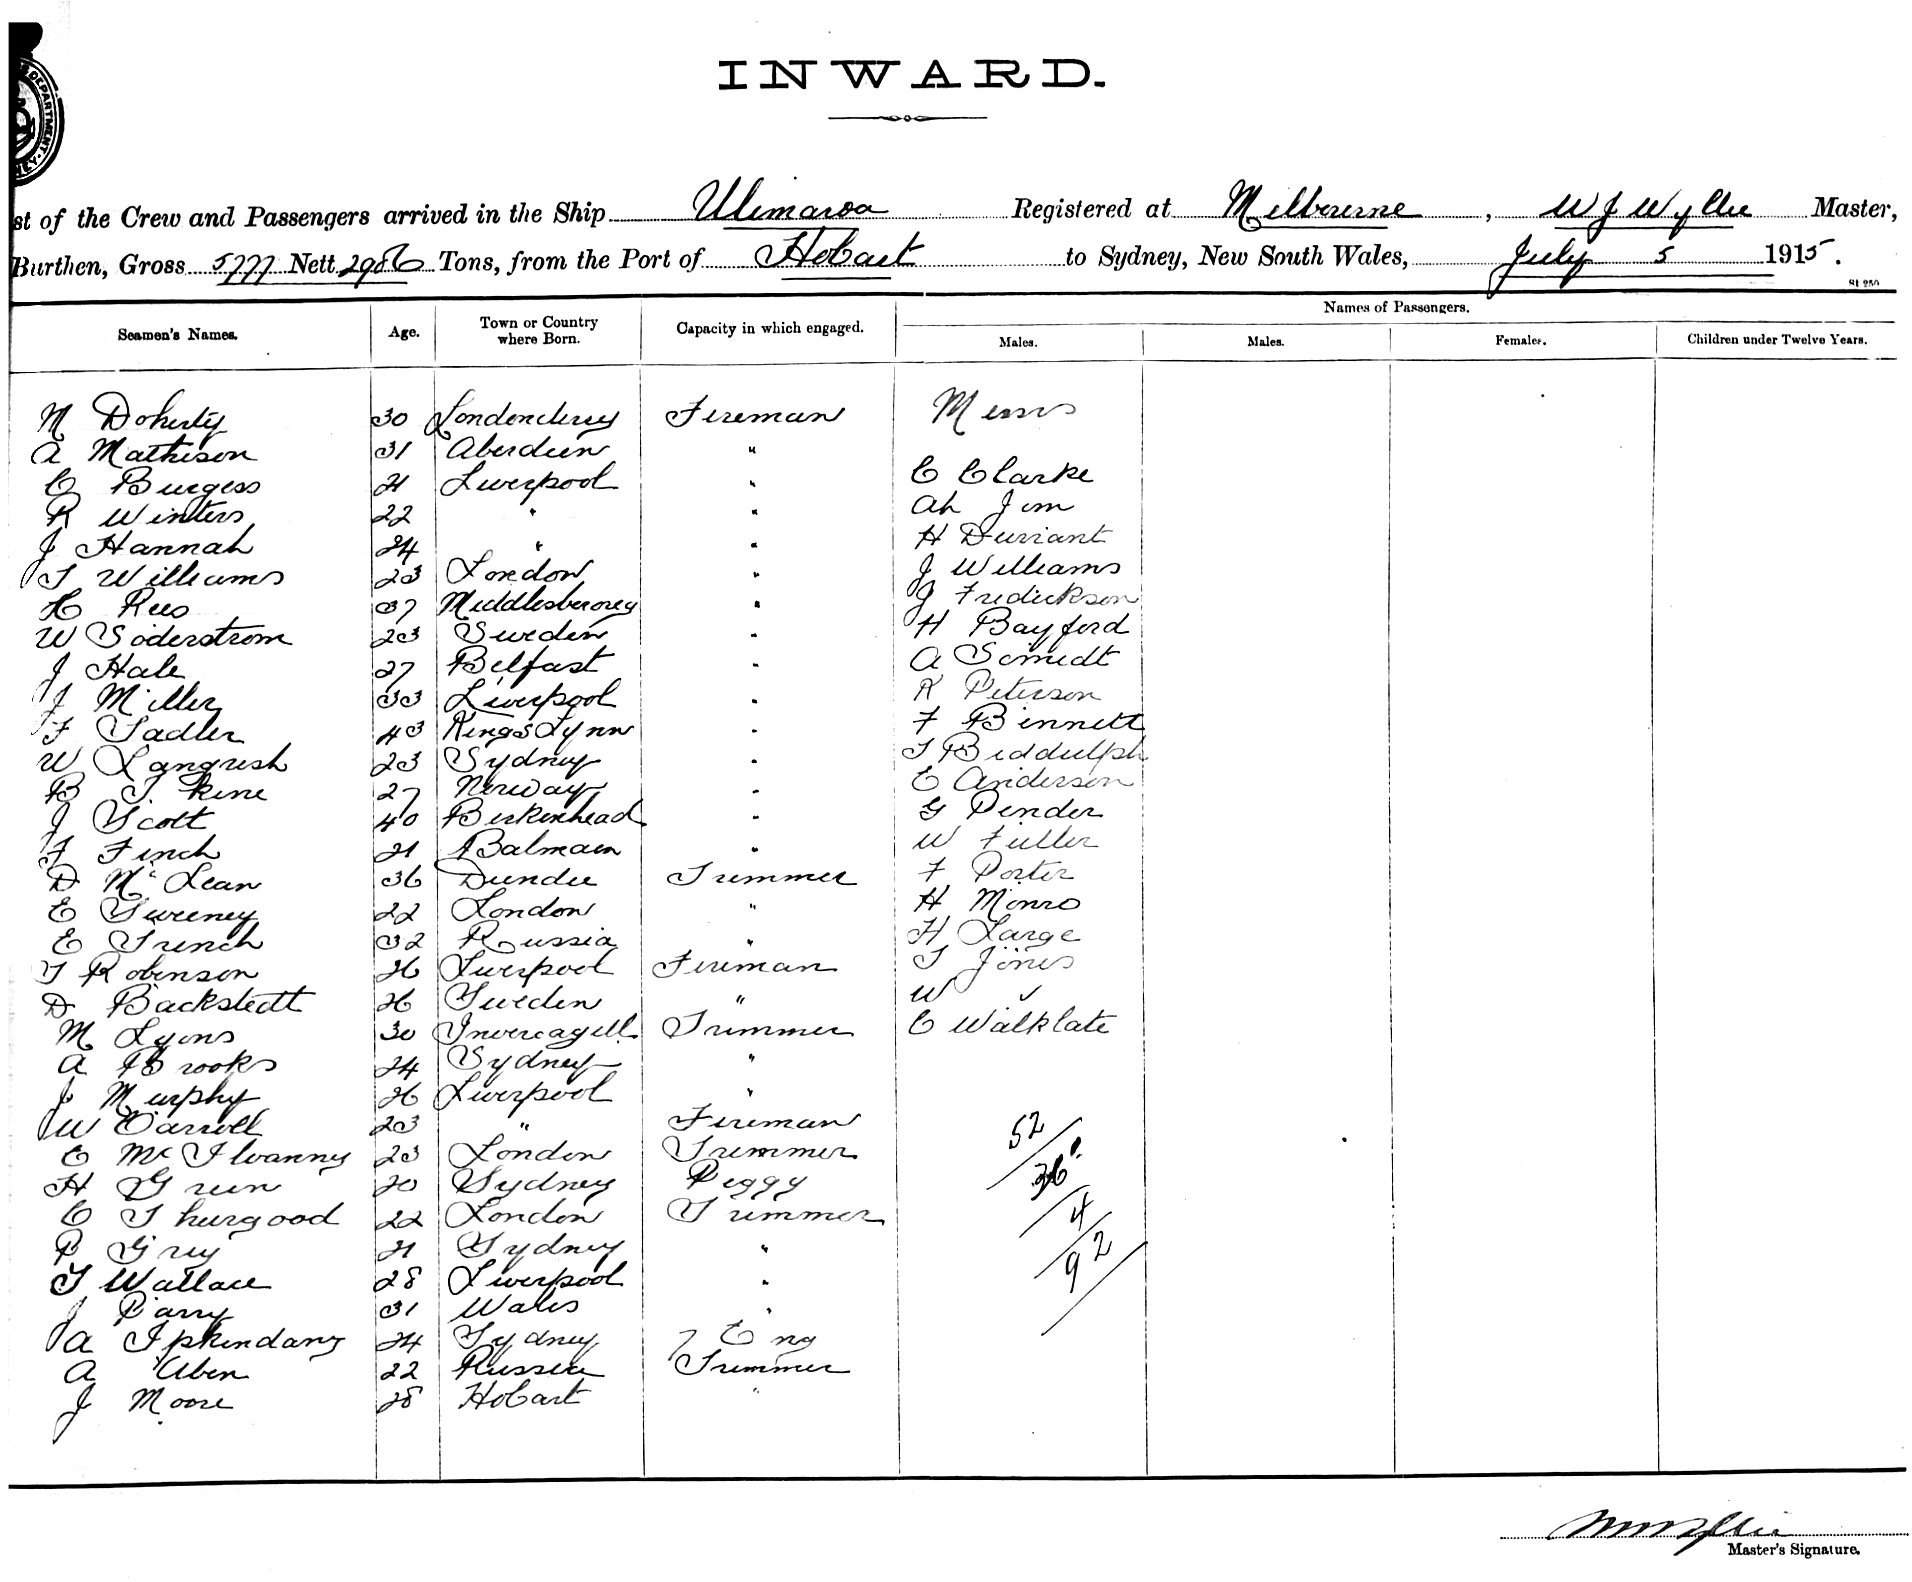 INWARD.
st of the Crew and Passengers arrived in the Ship Ulimaroa Registered at Melbourne, W J Wyllie Master,
Burthen, Gross 5777 Nett 2986 Tons, from the Port of Hobart to Sydney, New South Wales, July 5 1915.
Names of Passengers.
Seamen's Names. Age. Town or Country where Born. Capacity in which engaged. Males. Males. Females. Children under Twelve Years.
M Doherty 30 Londonderry Fireman Messrs
A Mathison 31 Aberdeen "
C Burgess 21 Liverpool " C Clarke
R Winters 22 " " Ah Jim
J Hannah 24 " " H Durrant
T Williams 23 London " J Williams
H Rees 37 " J Fredickson
W Soderstrom 23 Sweden " H Bayford
J Hale 27 Belfast " A Scmidt
J Miller 33 Liverpool " K Peterson
F Sadler 43 Kings Lynn " F Bennett
W Langrish 23 Sydney " T Biddulph
B 27 Norway " E Anderson
J Scott 40 Birkenhead " G Pender
F Finch 21 Balmain " W Fuller
D Mc Lean 36 Dundee Trimmer F Porter
E Sweeney 22 London " H Monro
E Trench 32 Russia " H Large
T Robinson 26 Liverpool Fireman T Jones
D Backstedt 26 Sweden " W "
M Lyons 30 Invercagill Trimmer C Walklate
A Brooks 24 Sydney "
J Murphy 26 Liverpool "
W Carroll 23 " Fireman
E Mc Ilvanny 23 London Trimmer
H Green 20 Sydney Peggy
C Thurgood 22 London Trimmer
P Grey 21 Sydney "
T Wallace 28 Liverpool "
J Parry 31 Wales "
A 24 Sydney 7 Eng
A Uben 22 Russia Trimmer
J Moore 28 Hobart "
52
36
4
92
Master's Signature.